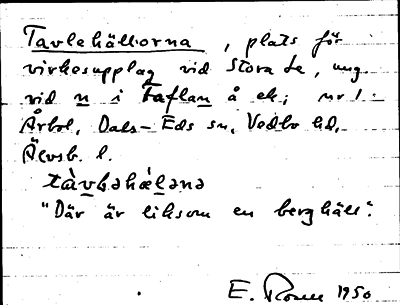 Tavlehällorna, plats för
virkesupplag vid Stora Le, ung.
vid n i Taflan å ek; nr 1
Årbol, Dals-Eds sn, Vedbo hd,
Älvsb. l.
"Där är liksom en berghäll".
E. 1950